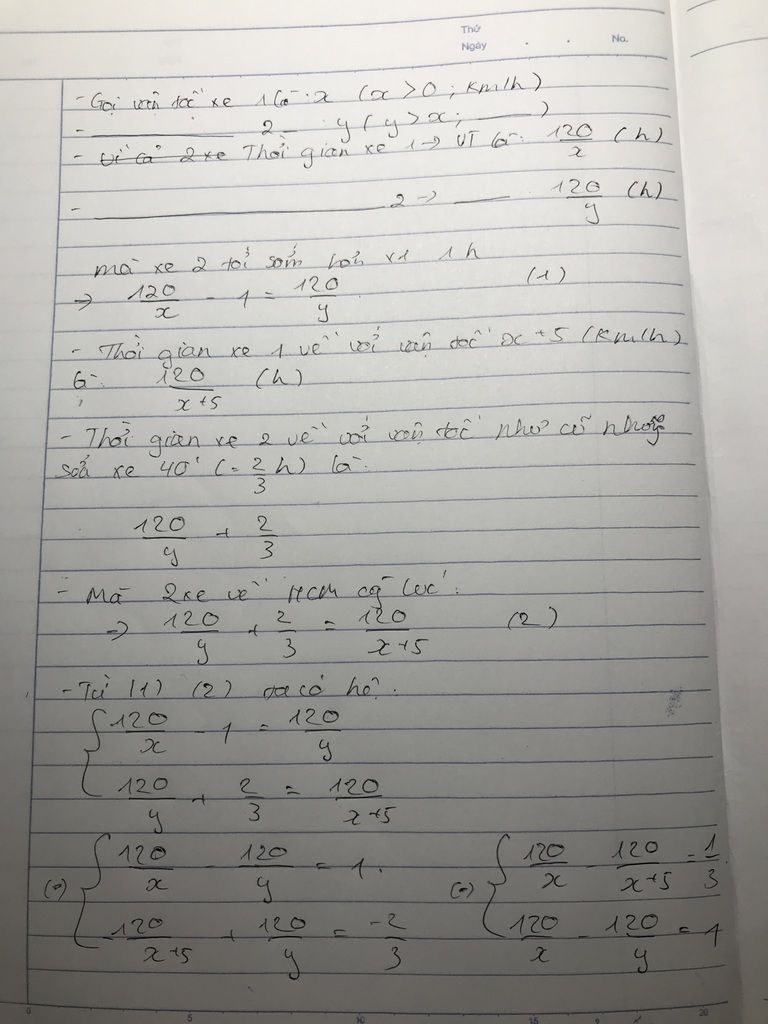 Thứ
Ngày . . No.
- Gọi vận tốc xe 1 là: x (x > 0; km/h)
- ______ 2 _ y (y > x; ___)
- Vì cả 2 xe Thời gian xe 1 → VT là: 120/x (h)
- ______ 2 → ___ 120/y (h)
mà xe 2 tới sớm hơn x1 1h
=> 120/x - 1 = 120/y (1)
- Thời gian xe 1 về với vận tốc x+5 (km/h)
là: 120/(x+5) (h)
- Thời gian xe 2 về với vận tốc như cũ nhưng
sửa xe 40' (= 2/3 h) là:
120/y + 2/3
- Mà 2 xe về HCM cg lúc:
=> 120/y + 2/3 = 120/(x+5) (2)
- Từ (1) (2) ta có hệ:
{ 120/x - 1 = 120/y
120/y + 2/3 = 120/(x+5)
(=) { 120/x - 120/y = 1. (=) { 120/x - 120/(x+5) = 1/3
-120/(x+5) + 120/y = -2/3 120/x - 120/y = 1
0 5 10 15 20